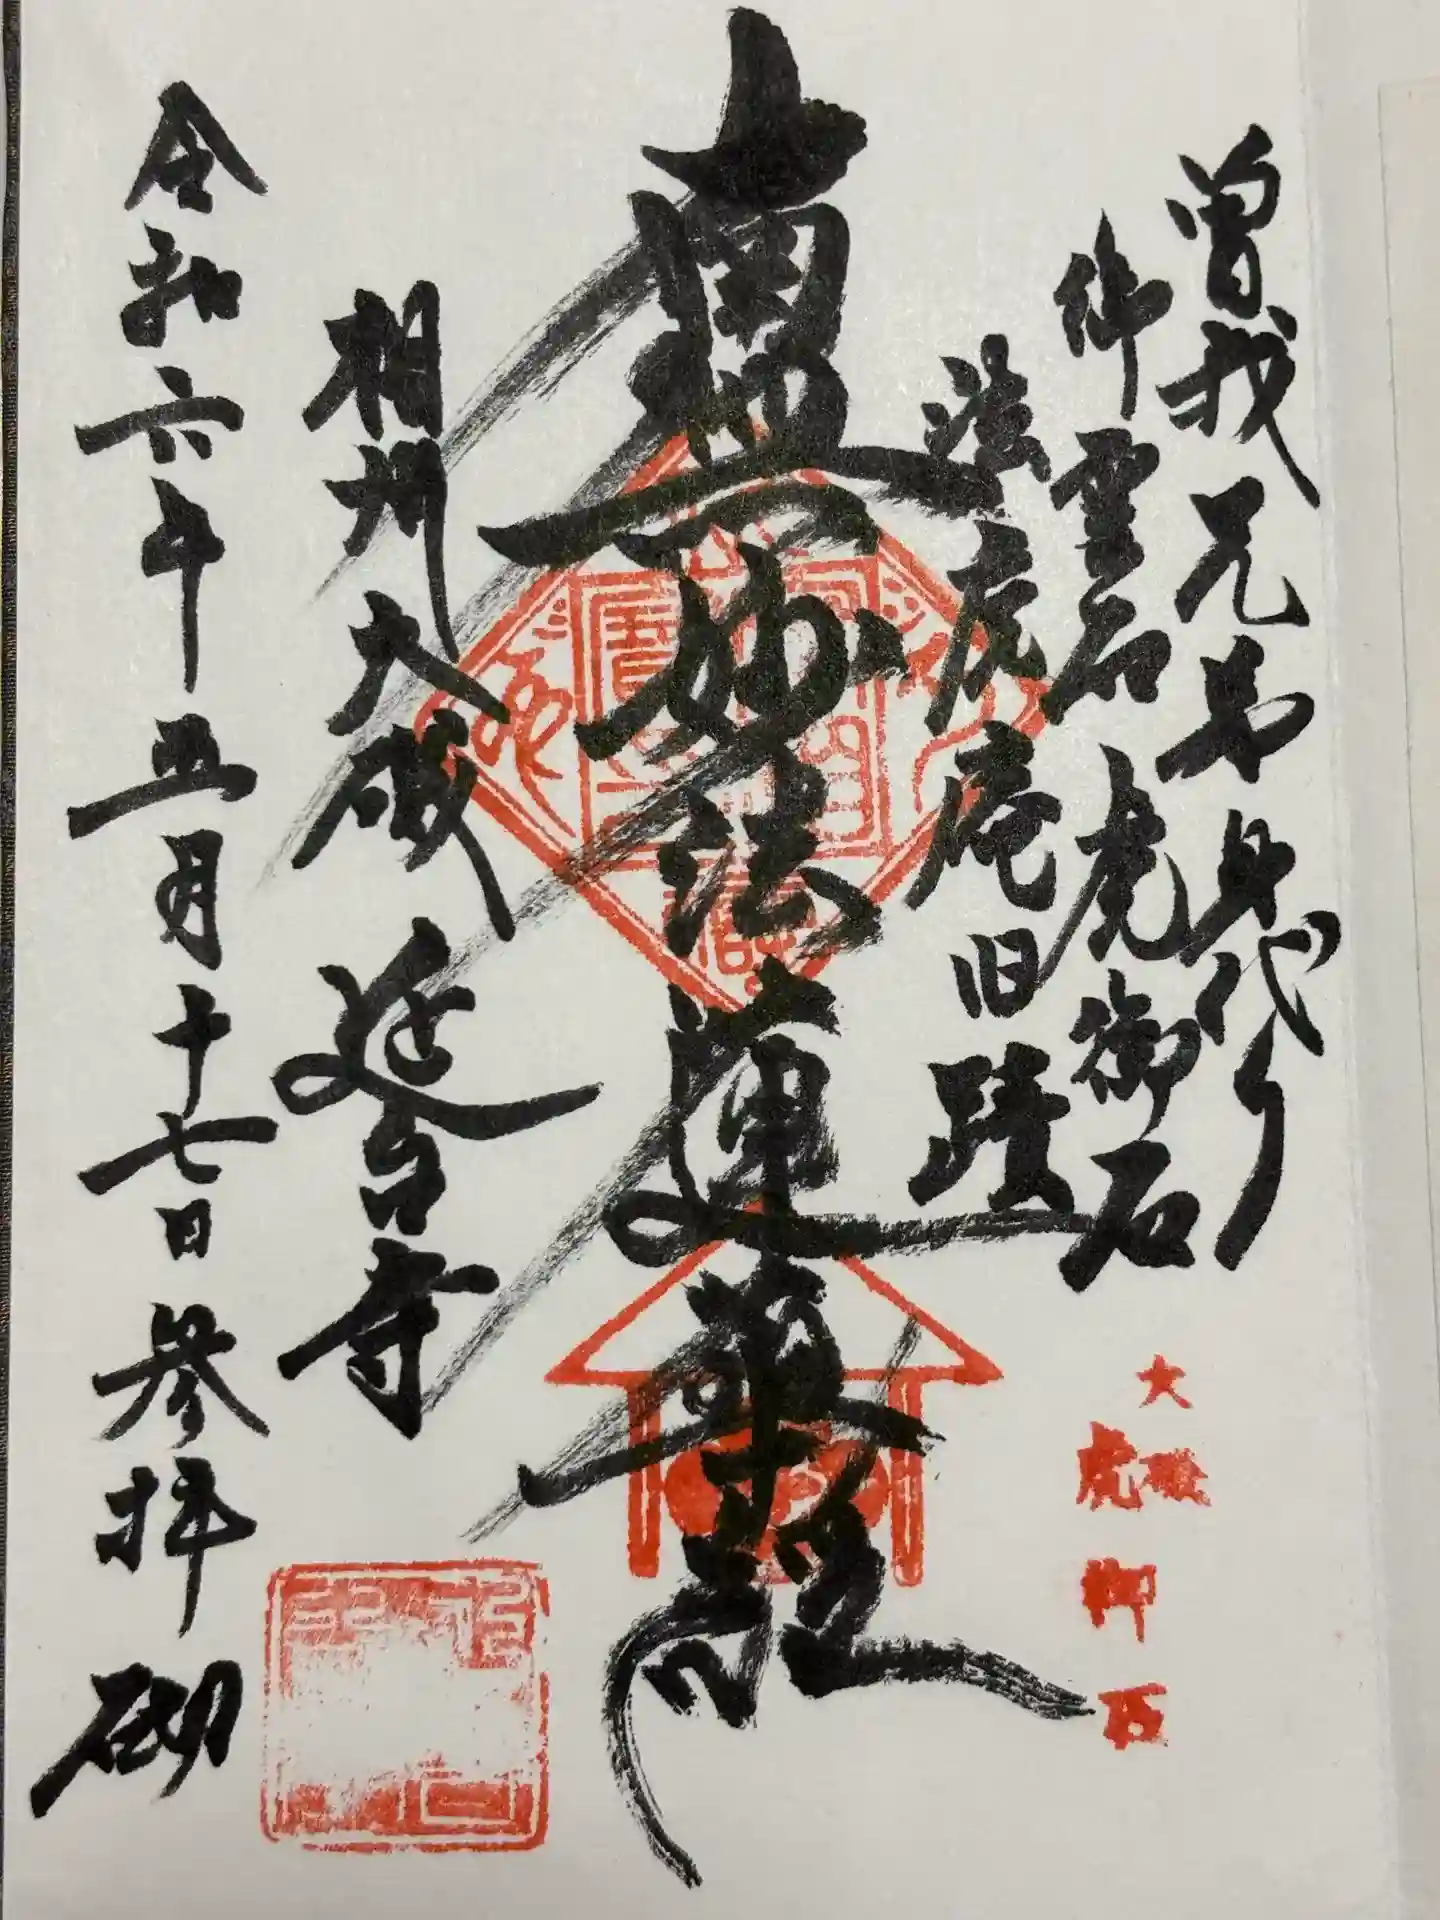 曽我兄弟身代り
御霊石虎御石
法虎庵旧蹟
南無妙法蓮華経
相州大磯延台寺
令和六年五月十七日参拝砌
大磯
虎御石